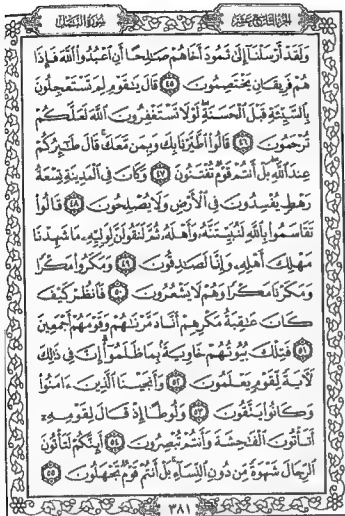 الجزء التاسع عشر
سورة النمل
وَلَقَدْ أَرْسَلْنَآ إِلَىٰ ثَمُودَ أَخَاهُمْ صَٰلِحًا أَنِ ٱعْبُدُوا۟ ٱللَّهَ فَإِذَا
هُمْ فَرِيقَانِ يَخْتَصِمُونَ ٤٥ قَالَ يَٰقَوْمِ لِمَ تَسْتَعْجِلُونَ
بِٱلسَّيِّئَةِ قَبْلَ ٱلْحَسَنَةِ لَوْلَا تَسْتَغْفِرُونَ ٱللَّهَ لَعَلَّكُمْ
تُرْحَمُونَ ٤٦ قَالُوا۟ ٱطَّيَّرْنَا بِكَ وَبِمَن مَّعَكَ قَالَ طَٰٓئِرُكُمْ
عِندَ ٱللَّهِ بَلْ أَنتُمْ قَوْمٌ تُفْتَنُونَ ٤٧ وَكَانَ فِى ٱلْمَدِينَةِ تِسْعَةُ
رَهْطٍ يُفْسِدُونَ فِى ٱلْأَرْضِ وَلَا يُصْلِحُونَ ٤٨ قَالُوا۟
تَقَاسَمُوا۟ بِٱللَّهِ لَنُبَيِّتَنَّهُۥ وَأَهْلَهُۥ ثُمَّ لَنَقُولَنَّ لِوَلِيِّهِۦ مَا شَهِدْنَا
مَهْلِكَ أَهْلِهِۦ وَإِنَّا لَصَٰدِقُونَ ٤٩ وَمَكَرُوا۟ مَكْرًا
وَمَكَرْنَا مَكْرًا وَهُمْ لَا يَشْعُرُونَ ٥٠ فَٱنظُرْ كَيْفَ
كَانَ عَٰقِبَةُ مَكْرِهِمْ أَنَّا دَمَّرْنَٰهُمْ وَقَوْمَهُمْ أَجْمَعِينَ
٥١ فَتِلْكَ بُيُوتُهُمْ خَاوِيَةًۢ بِمَا ظَلَمُوٓا۟ إِنَّ فِى ذَٰلِكَ
لَءَايَةً لِّقَوْمٍ يَعْلَمُونَ ٥٢ وَأَنجَيْنَا ٱلَّذِينَ ءَامَنُوا۟
وَكَانُوا۟ يَتَّقُونَ ٥٣ وَلُوطًا إِذْ قَالَ لِقَوْمِهِۦٓ
أَتَأْتُونَ ٱلْفَٰحِشَةَ وَأَنتُمْ تُبْصِرُونَ ٥٤ أَئِنَّكُمْ لَتَأْتُونَ
ٱلرِّجَالَ شَهْوَةً مِّن دُونِ ٱلنِّسَآءِ بَلْ أَنتُمْ قَوْمٌ تَجْهَلُونَ ٥٥
٣٨١